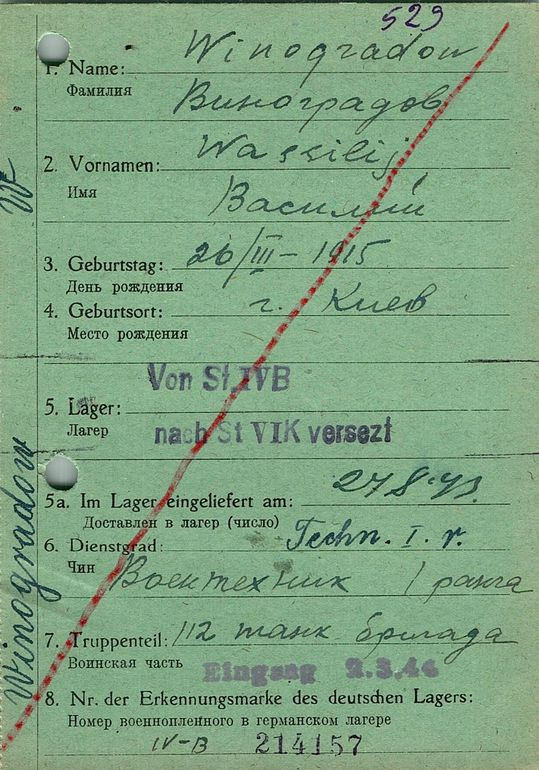 529
1. Name: Winogradow
Фамилия Виноградов
2. Vornamen: Wassilij
Имя Василий
3. Geburtstag: 26/III – 1915
День рождения
4. Geburtsort: г. Киев
Место рождения
Von St.IVB
5. Lager:
Лагер
nach St VIK versezt
5a. Im Lager eingeliefert am: 27.8.43.
Доставлен в лагер (число)
6. Dienstgrad: Techn. I. r.
Чин Воентехник 1 ранга
7. Truppenteil: 112 танк. бригада
Воинская часть
Eingang 2.3.44
8. Nr. der Erkennungsmarke des deutschen Lagers:
Номер военнопленного в германском лагере
IV-B 214157
W
Winogradow